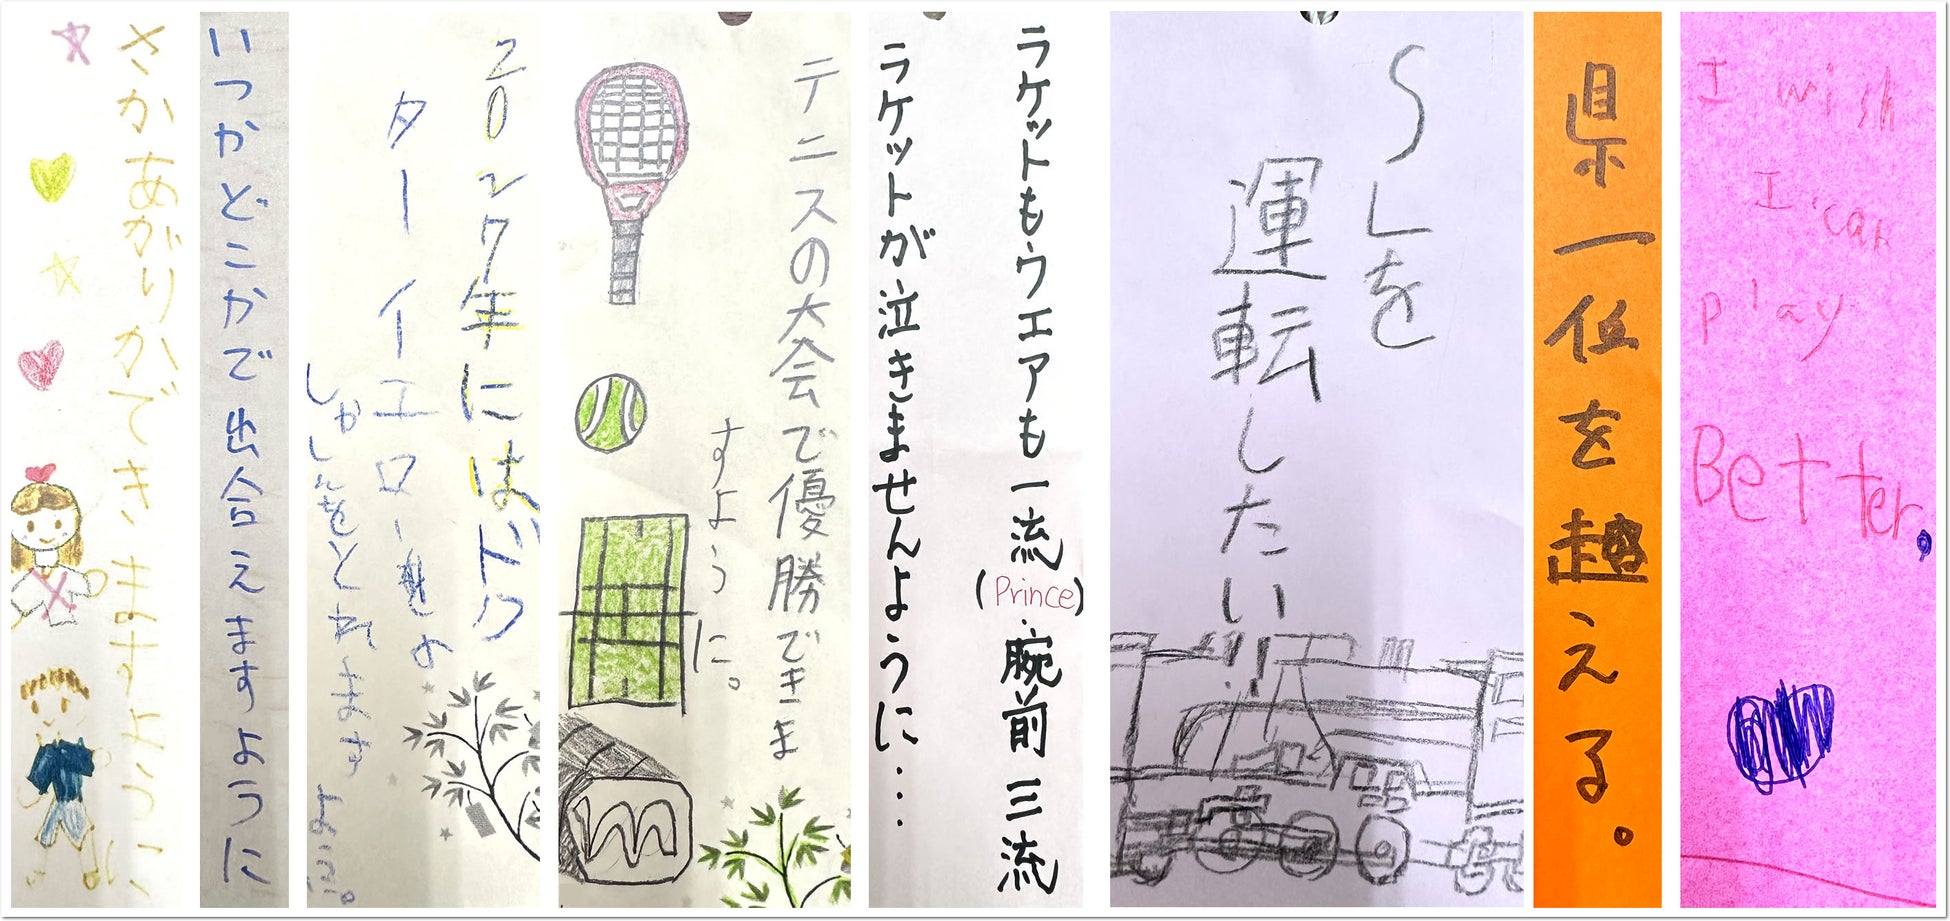 さかあがりかできますように
いつかどこかで出会えますように
2027年にはドク
ターイエローをの
しゃしんをとれますように。
テニスの大会で優勝できま
すように。
ラケットもウエアも一流(Prince)・腕前三流
ラケットが泣きませんように・・・
SLを
運転したい!!
県一位を越える。
I wish
I can
play
Better.